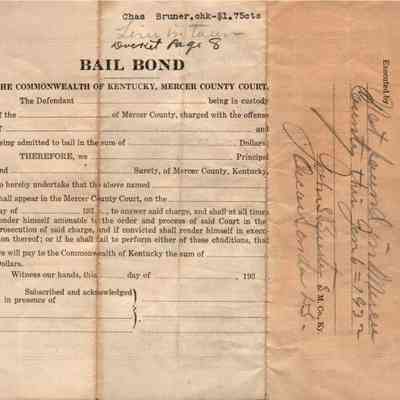 Chas Bruner.chk-$1.75cts
Docket Page 8
BAIL BOND
THE COMMONWEALTH OF KENTUCKY, MERCER COUNTY COURT,
The Defendant being in custody
of the of Mercer County, charged with the offense
of and
being admitted to bail in the sum of Dollars,
THEREFORE, we Principal
and Surety, of Mercer County, Kentucky,
do hereby undertake that the above named
shall appear in the Mercer County Court, on the
day of 193 , to answer said charge, and shall at all times
render himself amenable to the order and process of said Court in the
prosecution of said charge, and if convicted shall render himself in execu
tion thereof; or if he shall fail to perform either of these conditions, that
we will pay to the Commonwealth of Kentucky the sum of
Dollars.
Witness our hands, this day of , 193
Subscribed and acknowledged
in presence of
Executed by
Not found in Mercer
County this 1932
S. M. Co., Ky.